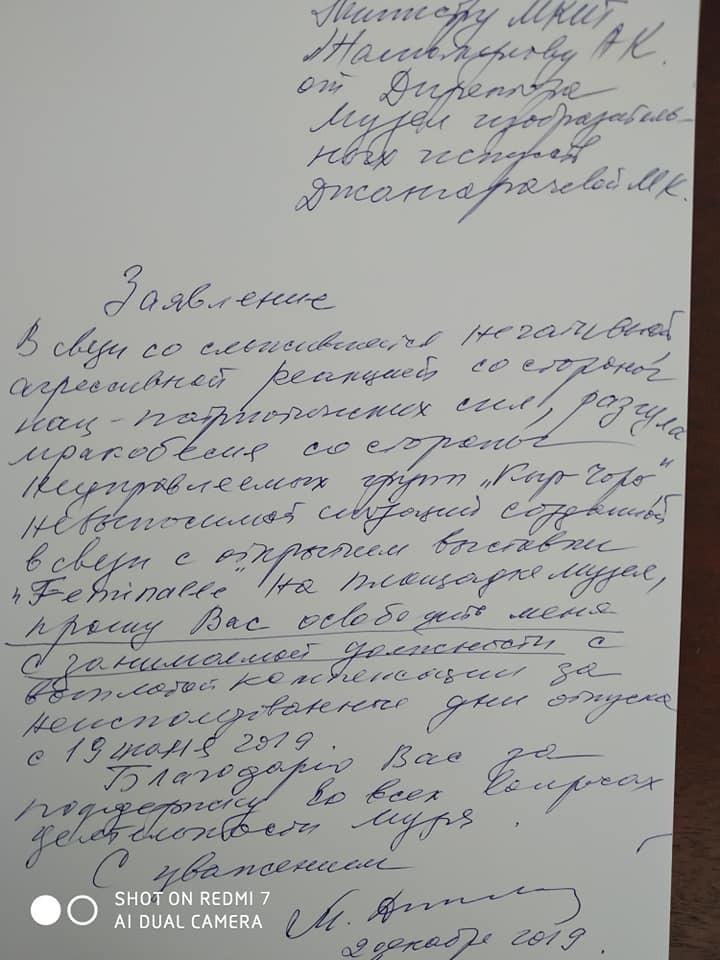 Министру МКИТ
Жаманкулову А К.
от Директора
музея изобразитель-
ных искусств
Джангарачевой М К.
Заявление
В связи со сложившейся негативной
агрессивной реакцией со стороны
нац-патриотических сил, разгула
мракобесия со стороны
неуправляемых групп "Кыр Чоро"
невыносимой ситуации созданной
в связи с открытием выставки
"Feminnale" на площадке музея,
прошу Вас освободить меня
с занимаемой должности с
выплатой компенсации за
неиспользованные дни отпуска
с 19 2019.
Благодарю Вас за
поддержку во всех вопросах
деятельности музея.
С уважением
М.
2 декабря 2019.
SHOT ON REDMI 7
AI DUAL CAMERA